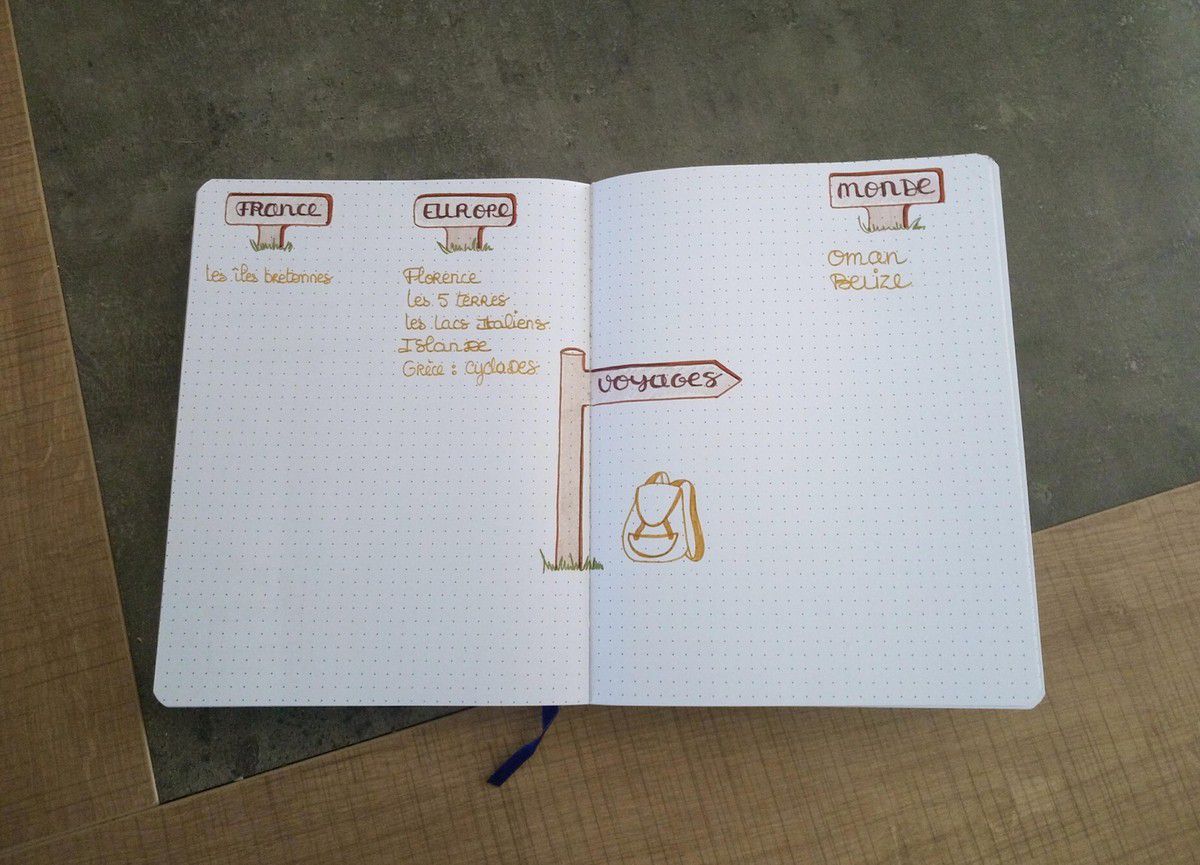 FRANCE
Les îles bretonnes
EUROPE
Florence
Les 5 terres
Les lacs Italiens
Islande
Grèce : Cyclades
VOYAGES
MONDE
Oman
Belize